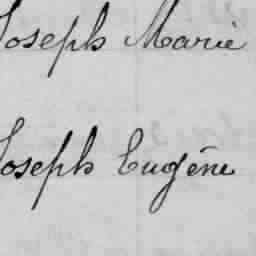 Joseph Marie
Joseph Eugène